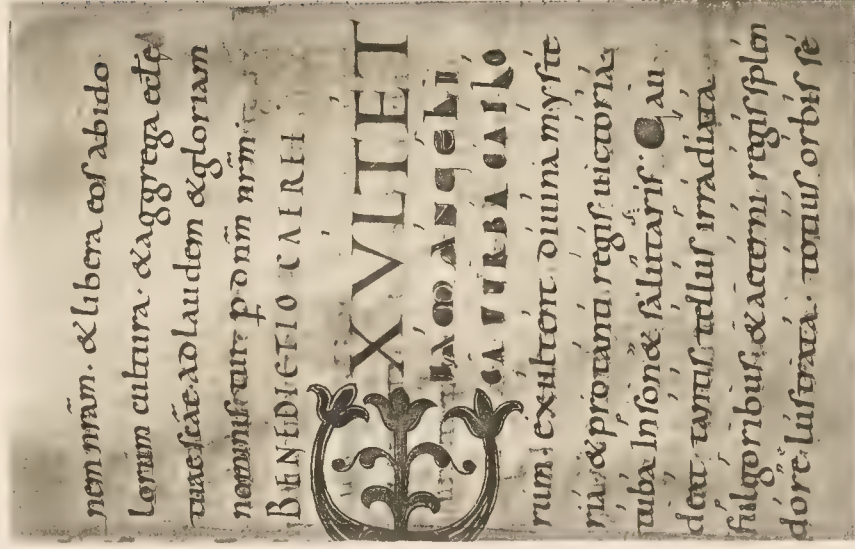 nem nr̄am · & libera eos ab ido
lorum cultura · & aggrega eccłę
tuae sc̄ae ad laudem & gloriam
nominis tui · p̱ dn̄m nr̄m ·
BENEDICTIO CAEREI
EXVLTET
IAM ANGELI
CA TURBA CAELO
rum exultent divina myste
ria & pro tanti regis victoria,
tuba Inson& salutaris · Gau
deat tantis tellus irradiata
fulgoribus & aeterni regis splen
dore lustrata · totius orbis se